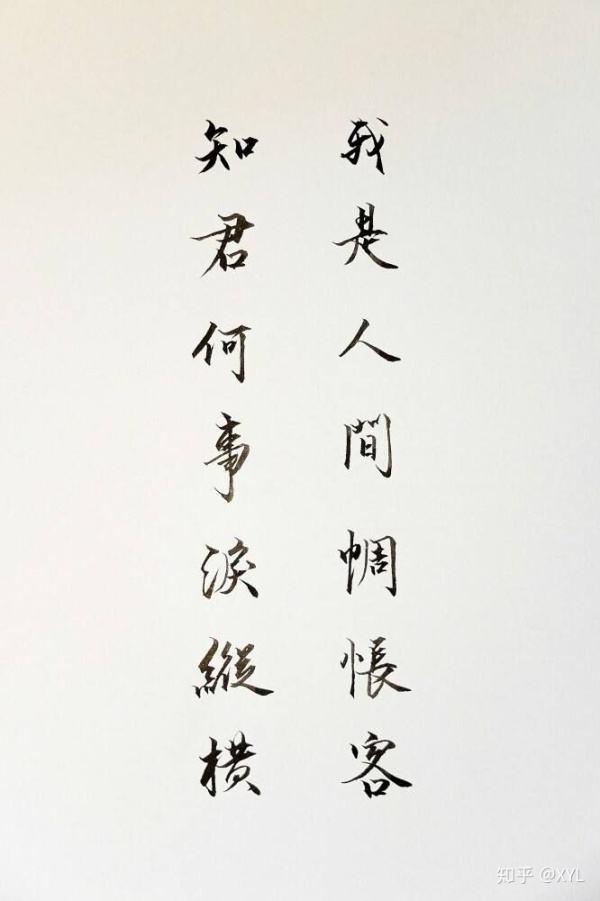 我是人間惆悵客
知君何事淚縱橫
知乎 @XYL